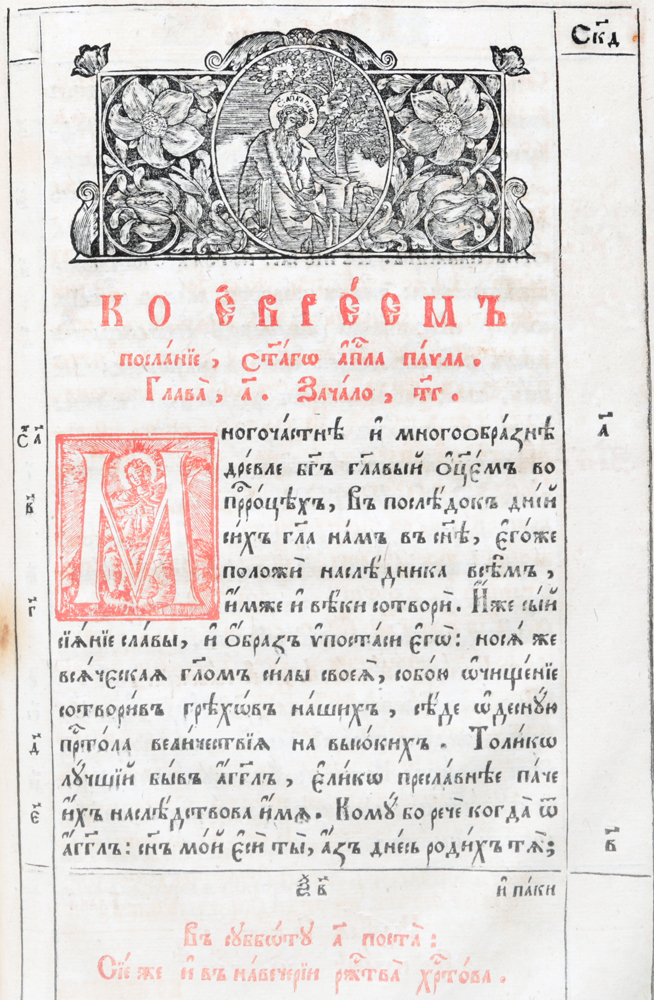 Ск҃д
КО Е҆ВРЕ́ЕМЪ
посла́нїе, ст҃а́гѡ а҆пⷭ҇ла па́ѵла.
Глава̀, а҃. Зача́ло, т҃г.
многоча́стнѣ и҆ многоѻбра́знѣ а҃
дре́вле бг҃ъ гл҃авый ѻ҆ц҃є́мъ во
прⷪ҇ро́цѣхъ, Въ послѣ́докъ дні́й
си́хъ гл҃а на́мъ въ сн҃ѣ, є҆го́же
положѝ наслѣ́дника всѣ̑мъ,
и҆́мже и҆ вѣ́ки сотворѝ. И҆́же сы́й
сїѧ́нїе сла́вы, и҆ ѻ҆́бразъ ѵ҆поста́си є҆гѡ̀: носѧ́ же
всѧ́чєскаѧ гл҃го́мъ си́лы своеѧ̀, собо́ю ѡ҆чище́нїе
сотвори́въ грѣхѡ́въ на́шихъ, сѣ́де ѡ҆деснꙋ́ю
прⷭ҇то́ла вели́чествїѧ на высо́кихъ. Толи́кѡ
лꙋ́чшїй бы́въ а҆́гг҃лъ, є҆ли́кѡ пресла́внѣе па́че
и҆́хъ наслѣ́дствова и҆́мѧ. Комꙋ́ бо речѐ когда̀ ѿ
а҆́гг҃лъ: сн҃ъ мо́й є҆сѝ ты̀, а҆́зъ дне́сь роди́хъ тѧ̀; в҃
и҆ па́ки
Въ сꙋббѡ́тꙋ а҃ поста̀:
Сїе́ же и҆ въ наве́черїи рж҇тⷭва̀ хрⷭ҇то́ва.